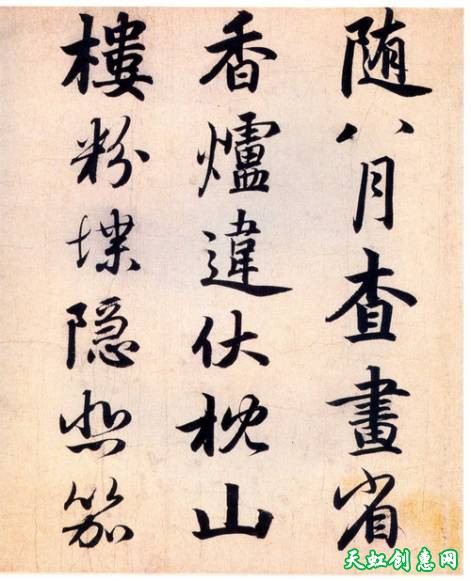 随八月查畫省
香爐違伏枕山
樓粉堞隐悲笳
天虹创惠网